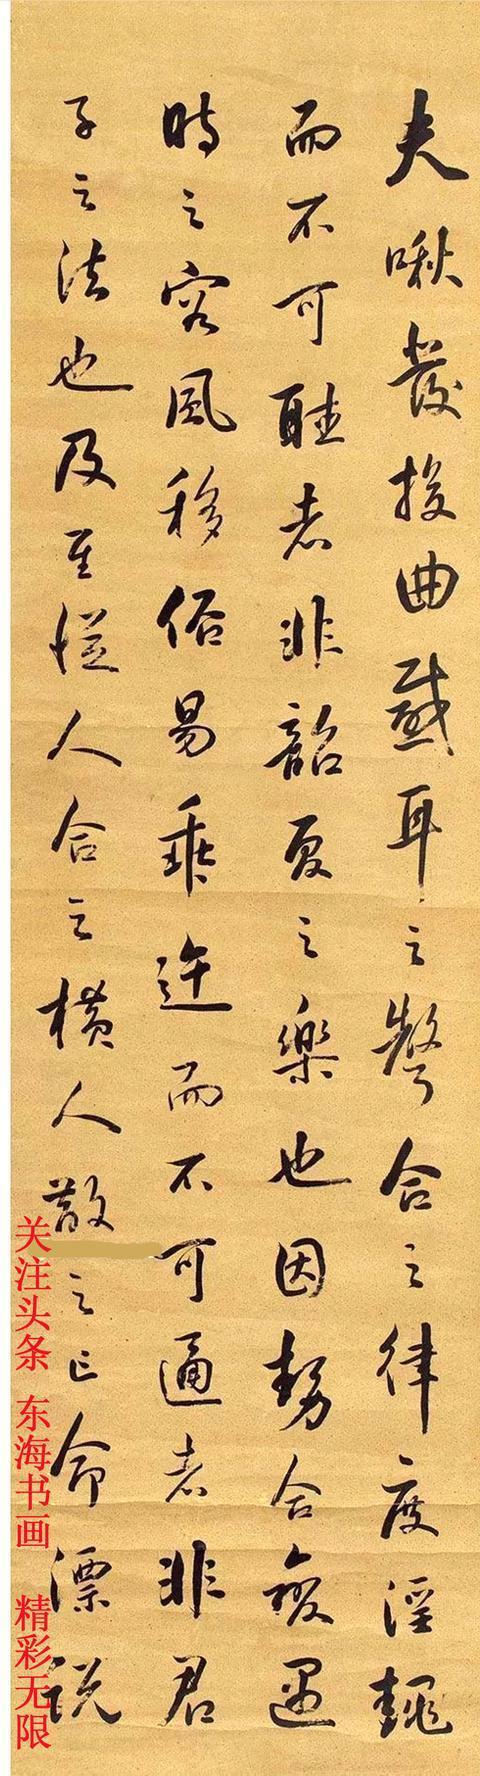 夫啾發投曲感耳之聲合之律度淫䵷
而不可聽者非韶夏之樂也因勢合變遇
時之容風移俗易乖迕而不可通者非君
子之法也及至從人合之橫人散之亡命漂說
关注头条 东海书画 精彩无限